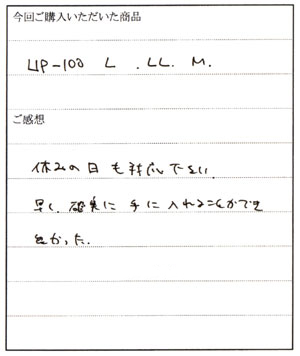 今回ご購入いただいた商品
UP-100 L . LL. M.
ご感想
休みの日も対応下さい、
早く、確実に手に入れることができ
良かった.